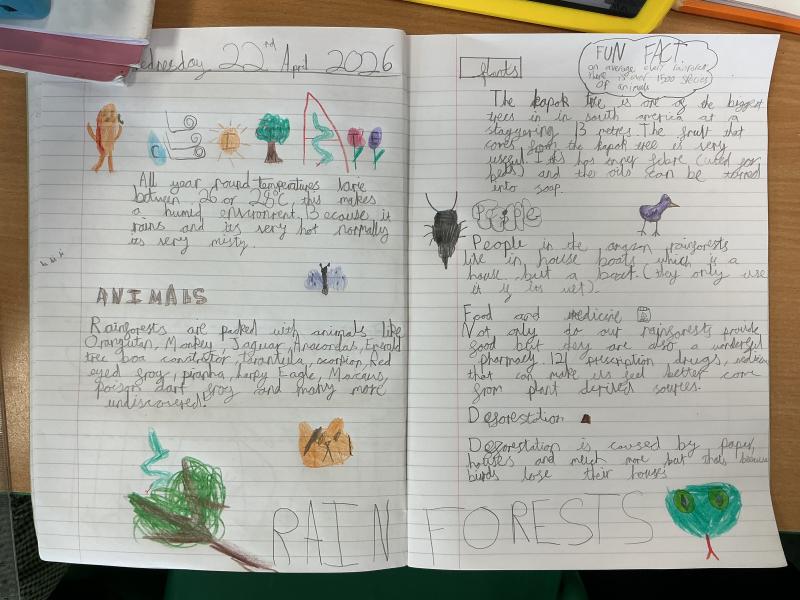 Wednesday 22nd April 2026
CLIMATE
All year round temperatures are
between 26 or 28°C, this makes
a humid environment. Because it
rains and its very hot normally
its very misty.
ANIMALS
Rainforests are packed with animals like
Orangutan, Monkey, Jaguar, Anacondas, Emerald
tree boa constrator, tarantella, scorpion, Red
eyed frog, piranha, harpy Eagle, Macaws,
poison dart frog and many more
undiscovered!
RAIN FORESTS
plants
FUN FACT
on average every rainforest
there is over 1500 species
of animals
The kapok tree is one of the biggest
trees in in south america at a
staggering 13 metres. The fruit that
comes from the kapok tree is very
useful. I this has inner fabre (used for
beds) and the oils can be turned
into soap.
People
People in the amazon rainforests
live in house boats which is a
house but a boat. (they only use
it if its wet).
Food and medicine
Not only do our rainforests provide
good but they are also a wonderful
pharmacy 121 prescription drugs,
that can make us feel better come
from plant derived sources.
Deforestation
Deforestation is caused by paper,
houses and much more but thats because
birds lose their houses